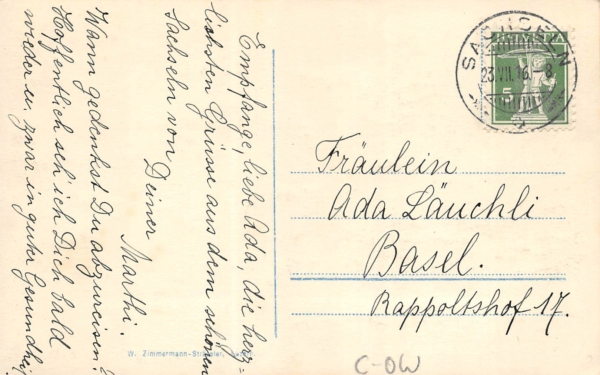 Empfange, liebe Ada, die herz=
lichsten Grüsse aus dem schönen
Sachseln von
Deiner
Marthi.
Wann gedenkst Du abzureisen?
Hoffentlich seh ich Dich bald
wieder u. zwar in guter Gesundheit
SACHSELN
23.VII.16.-8
HELVETIA
5
Fräulein
Ada Läuchli
Basel.
Rappoltshof 17.
W. Zimmermann-Strässler,
C-OW